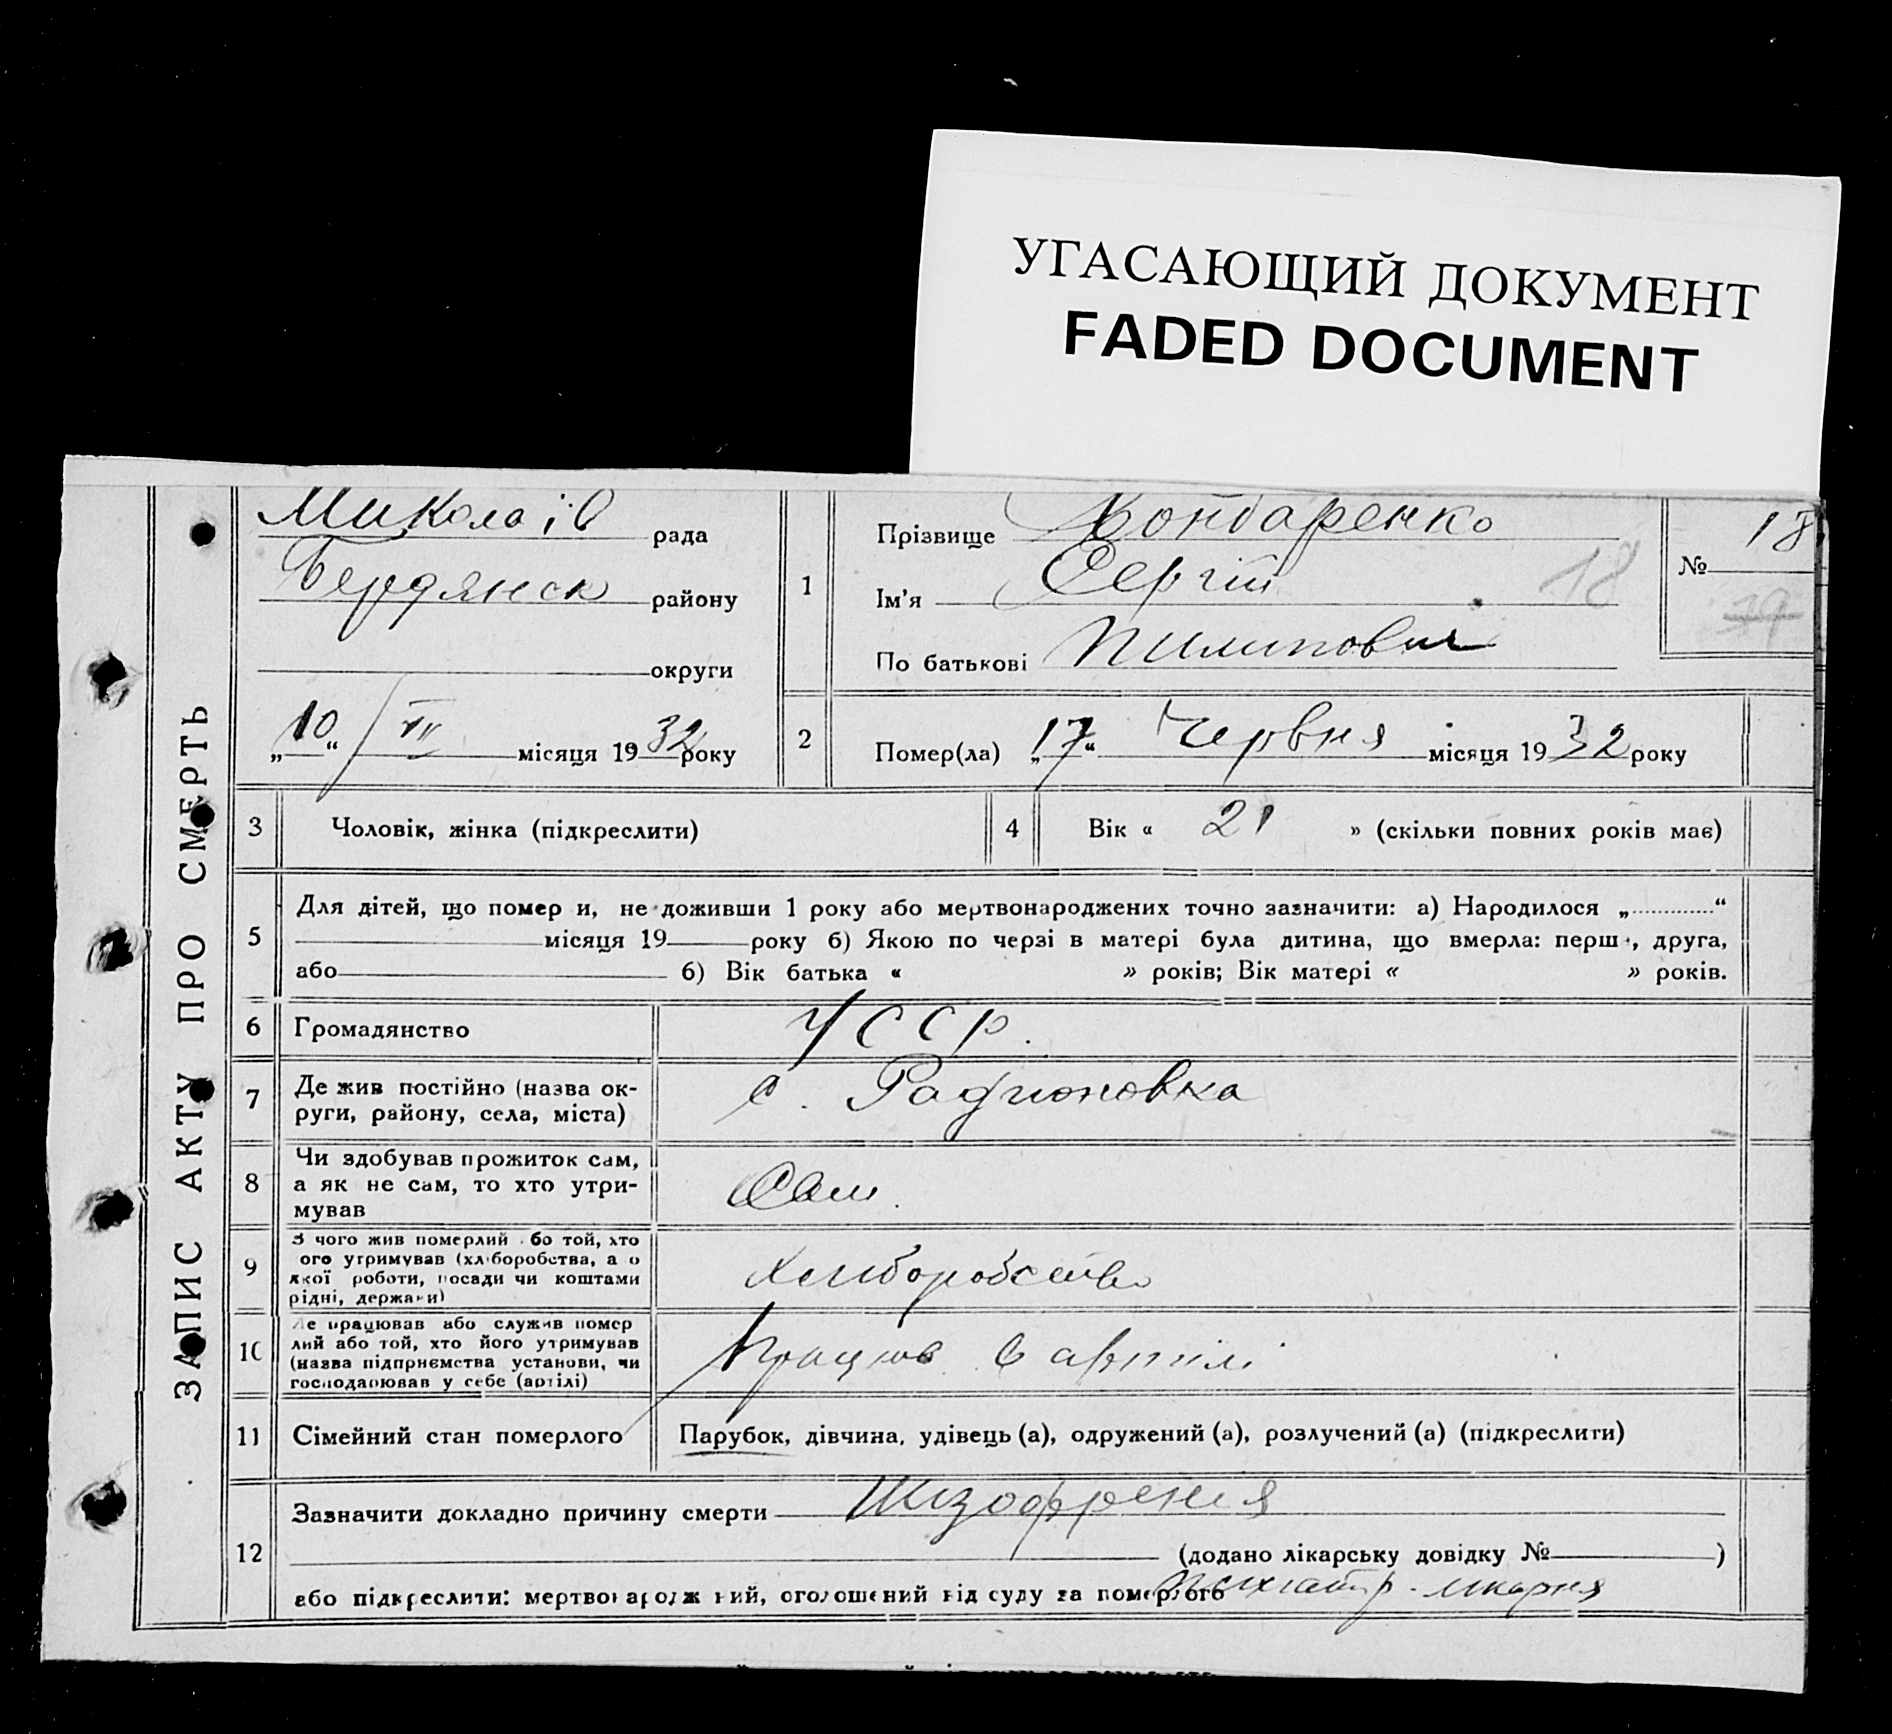 УГАСАЮЩИЙ ДОКУМЕНТ
FADED DOCUMENT
ЗАПИС АКТУ ПРО СМЕРТЬ
Миколаїв рада
Бердянск району
округи
„10“ / VII місяця 1932 року
1
Прізвище Бондаренко
Ім'я Сергій 18
По батькові Пилипович
№ 18
19
2
Помер(ла) „17“ Червня місяця 1932 року
3 Чоловік, жінка (підкреслити)
4 Вік « 21 » (скільки повних років має)
5
Для дітей, що помер и, не доживши 1 року або мертвонароджених точно зазначити: а) Народилося „ “
місяця 19 року б) Якою по черзі в матері була дитина, що вмерла: перш , друга,
або б) Вік батька « » років; Вік матері « » років.
6 Громадянство УССР.
7 Де жив постійно (назва ок-
руги, району, села, міста)
с. Радионовка
8 Чи здобував прожиток сам,
а як не сам, то хто утри-
мував
Сам.
9 З чого жив померлий бо той, хто
ого утримував (хліборобства, а о
якої роботи, посади чи коштами
рідні, держави)
Хлиборобство
10 Де працював або служив помер
лий або той, хто його утримував
(назва підприємства установи, чи
господарював у себе (артілі)
Працюв в артилі
11 Сімейний стан померлого
Парубок, дівчина, удівець (а), одружений (а), розлучений (а) (підкреслити)
12
Зазначити докладно причину смерти Шизофренія
(додано лікарську довідку № )
або підкреслити: мертвонароджений, оголошений від суду за померлого Психіатр. лікарня